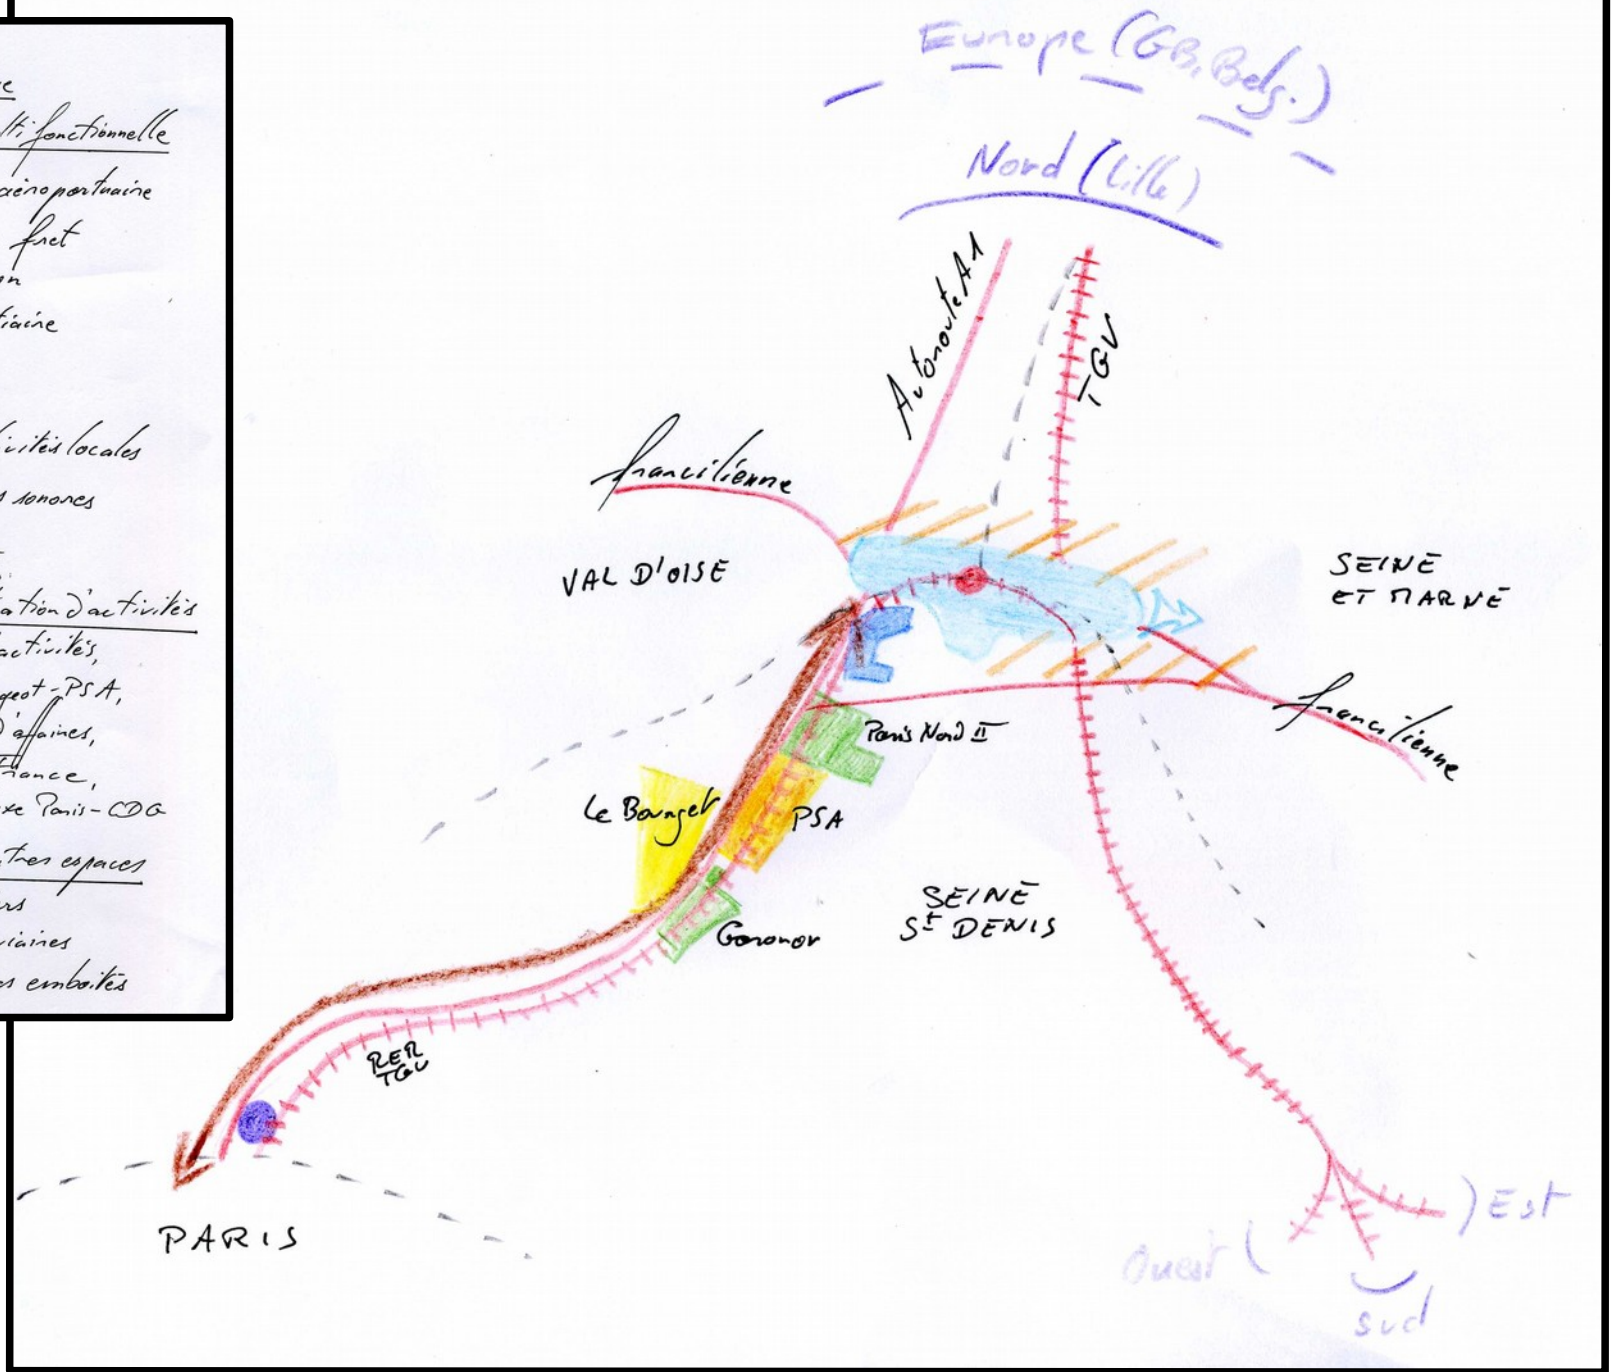 e
lti fonctionnelle
aéroportuaire
fret
on
tiaire
ivités locales
s sonores
ation d'activités
activités,
geot-PSA,
d'affaires,
France,
xe Paris-CDG
tres espaces
rs
viaires
es emboîtés
Europe (GB, Belg.)
Nord (Lille)
Autoroute A1
TGV
francilienne
VAL D'OISE
SEINE
ET MARNE
francilienne
Paris Nord II
Le Bourget
PSA
SEINE
St DENIS
Garonor
RER
TGV
PARIS
Est
Ouest
Sud